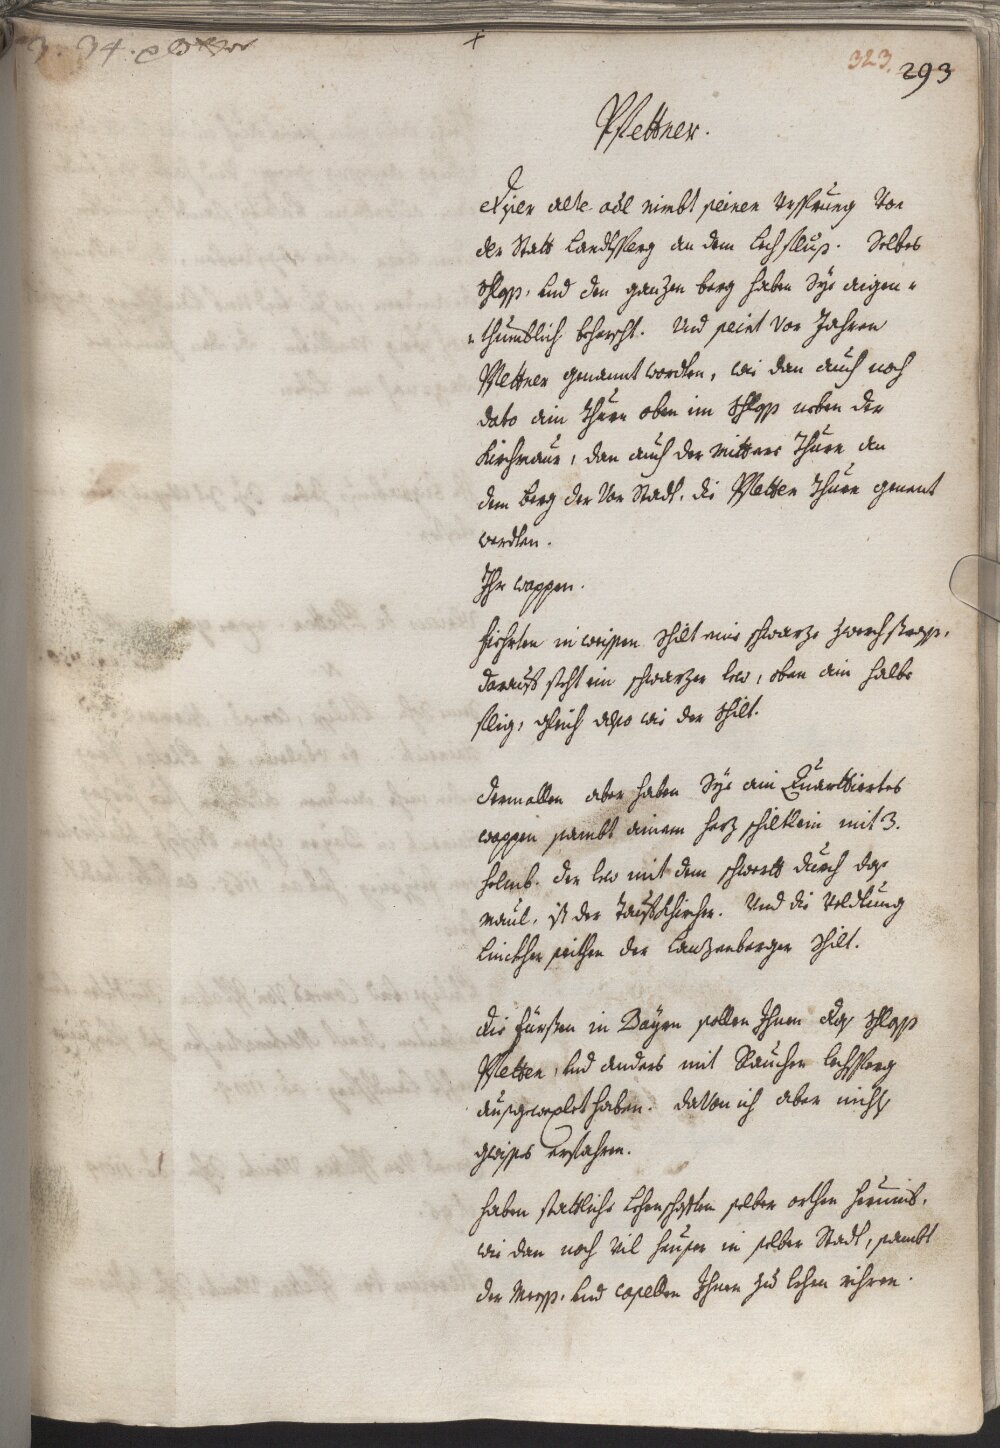 323. 293
Pfettner.
Diser alte adl nimbt seinen Vrsprung Von
der Statt Landtsperg an dem Lechfluß. Selbes
Schloss, Vnd den ganzen berg haben Sye aigen=
=thumblich beherscht. Vnd seint Vor Jahren
Pfettner genannt worden, wie dan auch noch
dato ain Thurn oben im Schloss neben der
Kirchmaur, dan auch der mittere Thurn an
dem berg der Vor Statt, die Pfetten Thurn genent
werden.
Ihr wappen.
fiehrten in weissen Schilt eine schwarze zwerchstrass,
darauf steht ein schwarzer lew, oben ain halbe
flig, gleich also wie der Schilt.
dermallen aber haben Sye ain Quartiertes
wappen sambt ainem herz schiltlein mit 3.
helmb. der lew mit dem schwertt durch das
maul, ist der Taufkhircher. Vnd die Veldtung
linckher seithen der Lanzenberger Schilt.
die Fürsten in Bayrn sollen Ihnen das Schloss
Pfetten, Vnd anders mit Rauchen Lechsperg
ausgewexlet haben. daVon ich aber nichts
gwisses erfahren.
haben stattliche Lehenschafften selber orthen herumb,
wie dan noch Vil heuser in selber Statt, sambt
der Mess, Vnd capellen Ihnen zu lehen riehren.